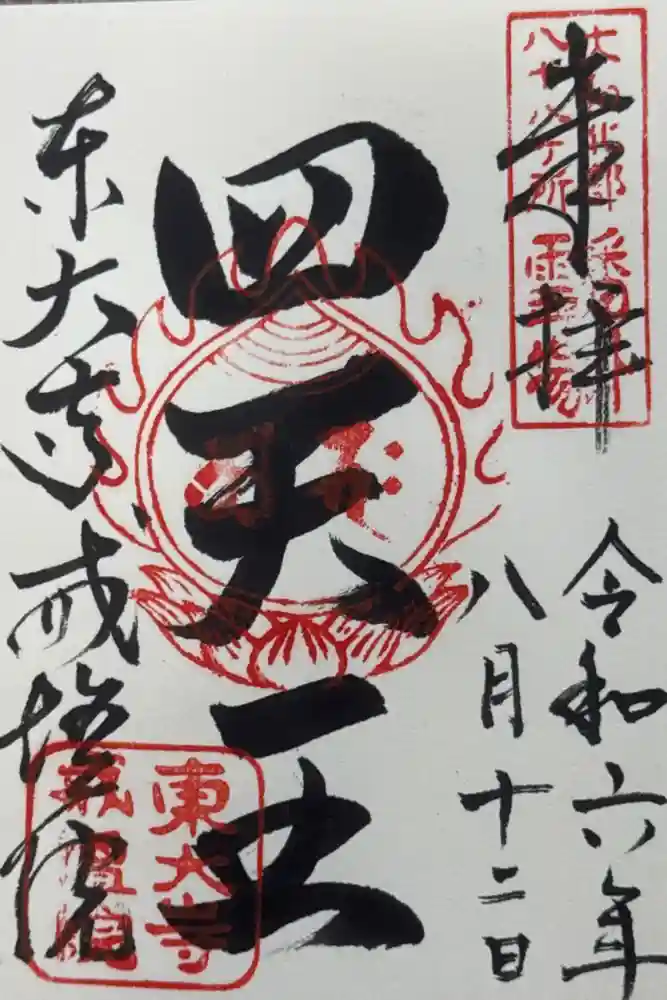 奉拝
八十八ヶ所
霊場
令和六年
八月十二日
四天王
東大寺戒壇院
東大寺
戒壇院